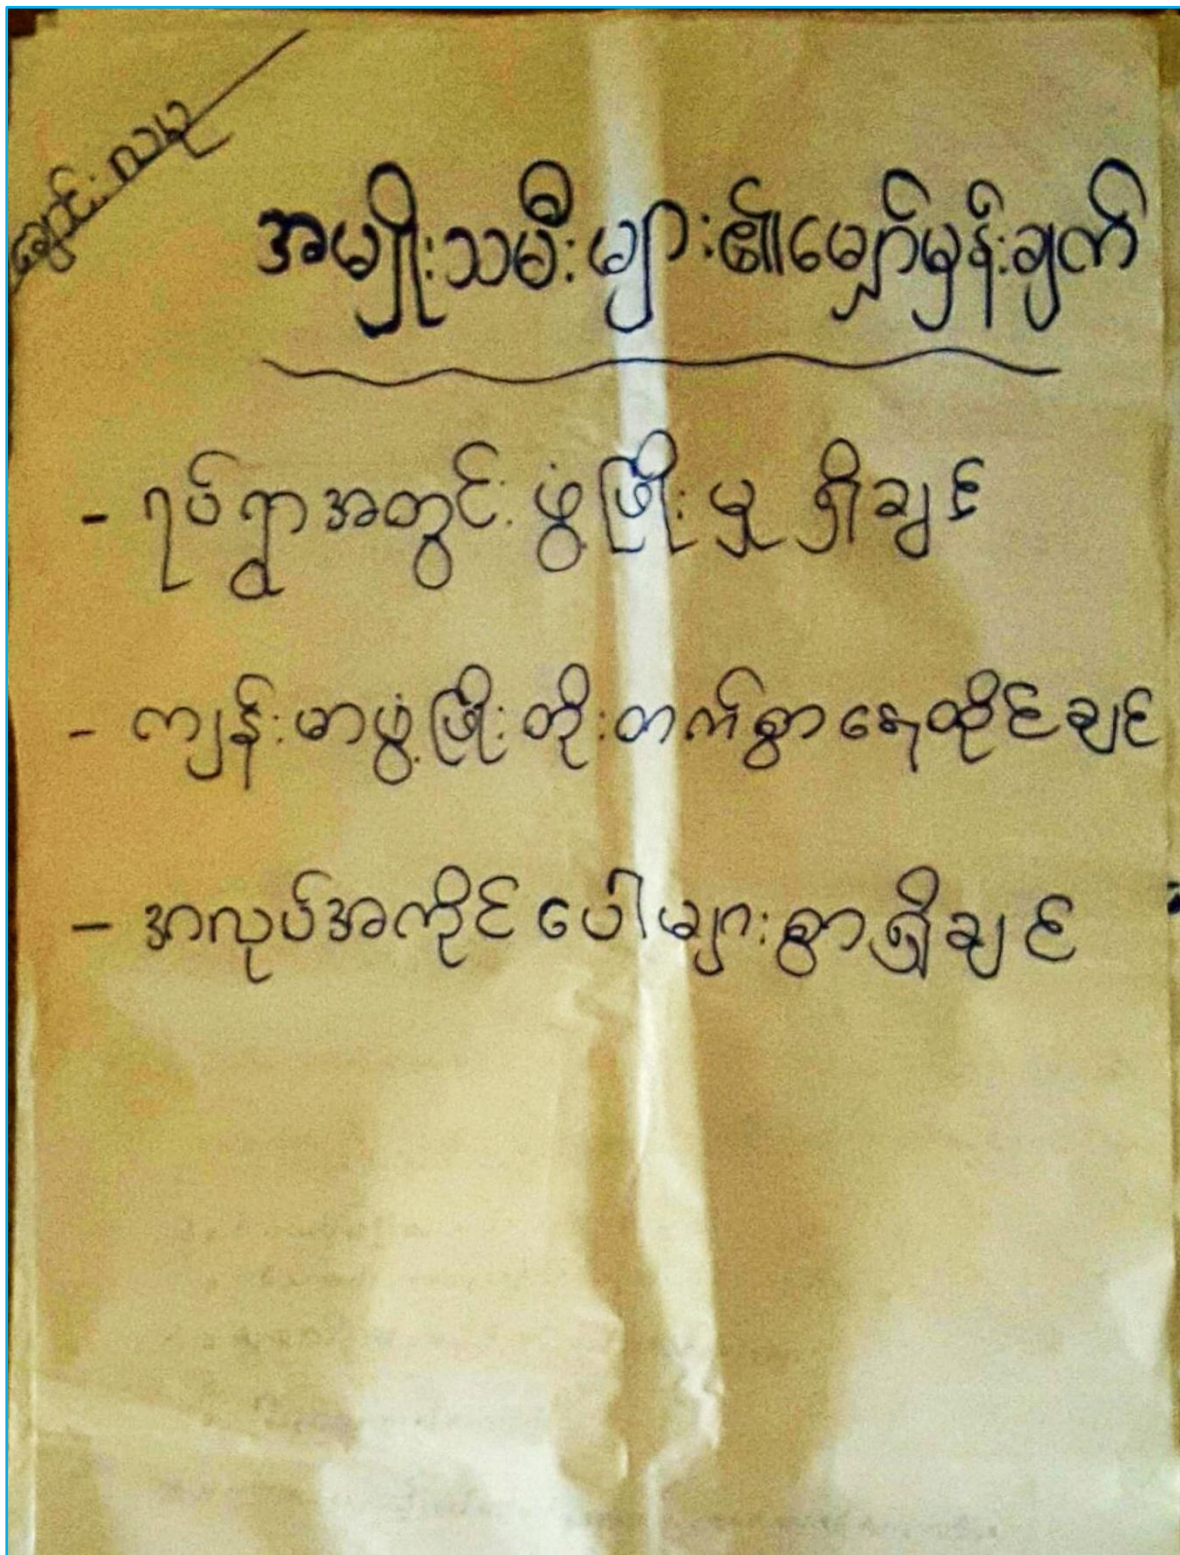 ချောင်းလမု
အမျိုးသမီးများ၏မျှော်မှန်းချက်
- ရပ်ရွာအတွင်း ဖွံ့ဖြိုးမှု ရှိချင်
- ကျန်းမာဖွံ့ဖြိုးတိုးတက်စွာနေထိုင်ချင်
- အလုပ်အကိုင်ပေါများစွာရှိချင်